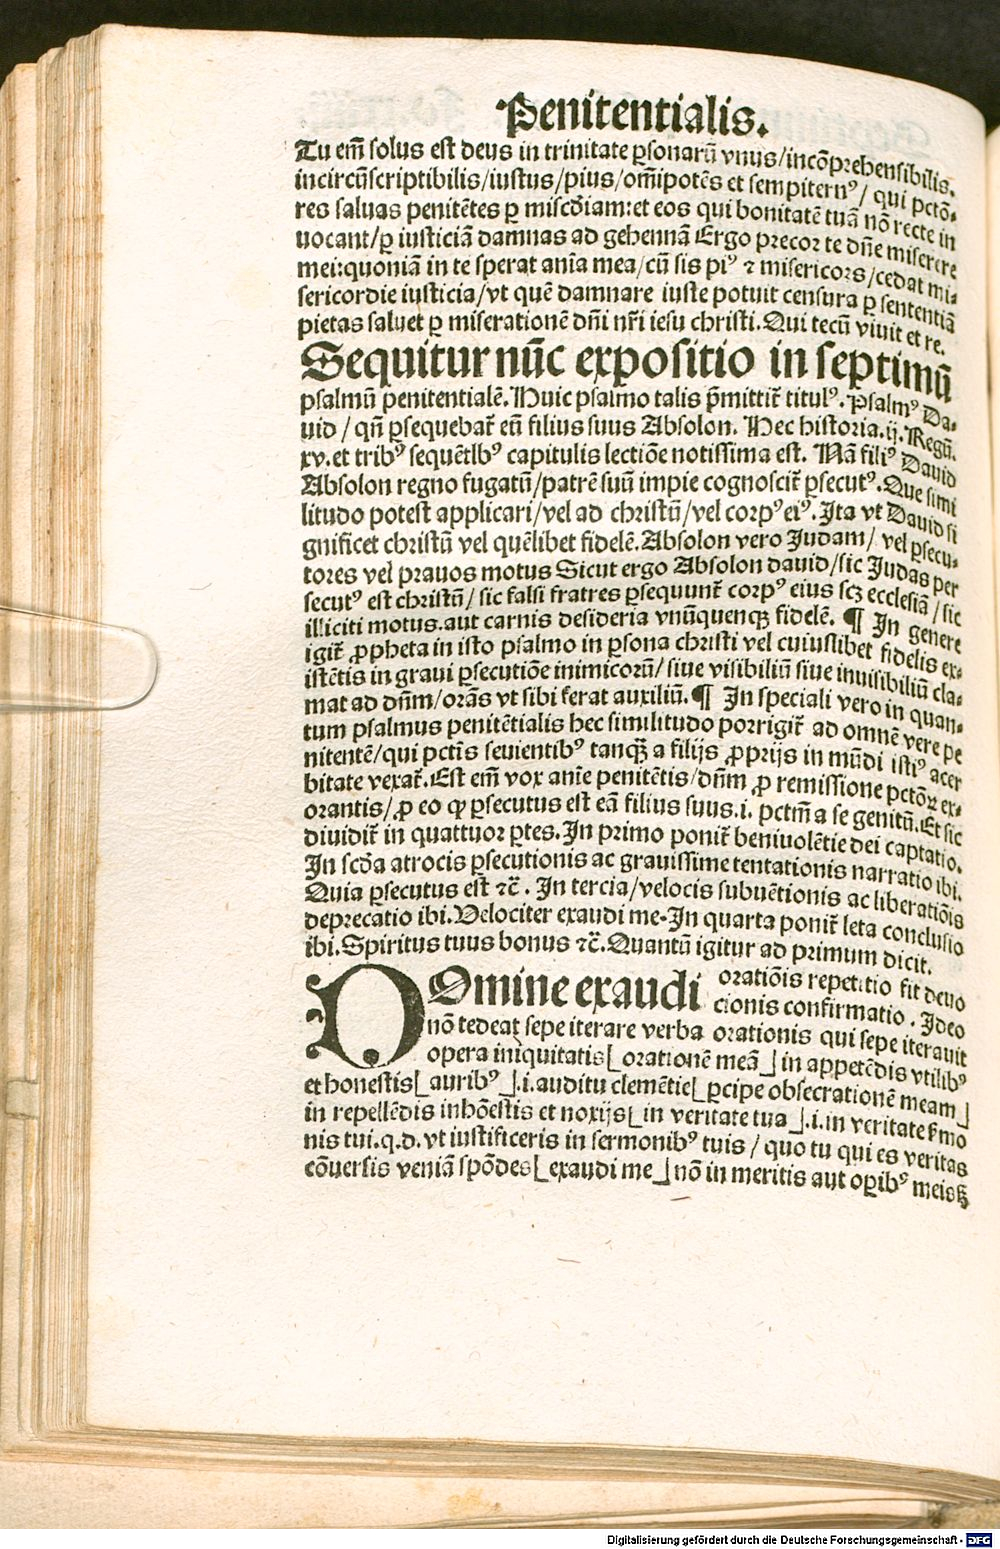 Penitentialis.
Tu em̄ solus est deus in trinitate ꝑsonarū vnus/incōprehensibilis.
incircūscriptibilis/iustus/pius/om̄ipotēs et sempitern⁹/ qui pctō-
res saluas penitētes ꝑ miscd̄iam:et eos qui bonitatē tuā nō recte in
uocant/ꝑ iusticiā damnas ad gehennā Ergo precor te dn̄e miserere
mei:quoniā in te sperat anīa mea/cū sis pi⁹ ⁊ misericors/cedat mi-
sericordie iusticia/vt quē damnare iuste potuit censura ꝑ sententiā
pietas saluet ꝑ miserationē dn̄i nr̄i iesu christi.Qui tecū viuit et re.
Sequitur nūc expositio in septimū
psalmū penitentialē.Huic psalmo talis p̄mittit̄ titul⁹.Psalm⁹ Da-
uid / qn̄ ꝑsequebat̄ eū filius suus Absolon. Hec historia.ij.Regū.
xv.et trib⁹ sequētib⁹ capitulis lectiōe notissima est. Nā fili⁹ David
Absolon regno fugatū/patrē suū impie cognoscit̄ ꝑsecut⁹.Que simi
litudo potest applicari/vel ad christū/vel corp⁹ ei⁹.Ita vt Dauid si
gnificet christū vel quēlibet fidelē.Absolon vero Judam/ vel ꝑsecu-
tores vel prauos motus Sicut ergo Absolon dauid/sic Judas per
secut⁹ est christū/ sic falsi fratres ꝑsequunt̄ corp⁹ eius scꝫ ecclesiā /sic
illiciti motus.aut carnis desideria vnūquenqꝫ fidelē. ¶ In genere
igit̄ ꝓpheta in isto psalmo in ꝑsona christi vel cuiuslibet fidelis ex-
istētis in graui ꝑsecutiōe inimicorū/ siue visibiliū siue inuisibiliū cla-
mat ad dn̄m/orās vt sibi ferat auxiliū.¶ In speciali vero in quan-
tum psalmus penitētialis hec similitudo porrigit̄ ad omnē vere pe
nitentē/qui pctīs seuientib⁹ tanqꝫ a filijs ꝓprijs in mūdi isti⁹ acer
bitate vexat̄.Est em̄ vox anīe penitētis/dn̄m ꝓ remissione pctōꝝ ex-
orantis/ꝓ eo ꝙ ꝑsecutus est eā filius suus.i. pctm̄ a se genitū.Et sic
diuidit̄ in quattuor ꝑtes.In primo ponit̄ beniuolētie dei captatio.
In scd̄a atrocis ꝑsecutionis ac grauissime tentationis narratio ibi.
Quia ꝑsecutus est ⁊c̄. In tercia/velocis subuētionis ac liberatiōis
deprecatio ibi.Velociter exaudi me.In quarta ponit̄ leta conclusio
ibi.Spiritus tuus bonus ⁊c̄.Quantū igitur ad primum dicit.
DOmine exaudi oratiōis repetitio fit deuo
cionis confirmatio. Ideo
nō tedeat sepe iterare verba orationis qui sepe iterauit
opera iniquitatis⌊ orationē meā⌋ in appetēdis vtilib⁹
et honestis⌊ aurib⁹⌋.i.auditu clemētie⌊ ꝑcipe obsecrationē meam⌋
in repellēdis inhōestis et noxijs⌊ in veritate tua⌋.i.in veritate s̄mo
nis tui.q.d. vt iustificeris in sermonib⁹ tuis / quo tu qui es veritas
cōuersis veniā spōdes⌊exaudi me⌋ nō in meritis aut oꝑib⁹ meis
Digitalisierung gefördert durch die Deutsche Forschungsgemeinschaft - DFG